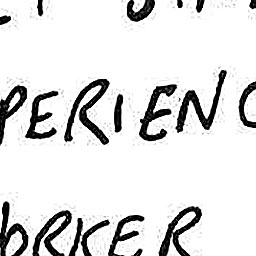 PERIENC
ORKER